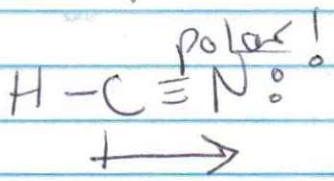 polar!
H-C≡N: